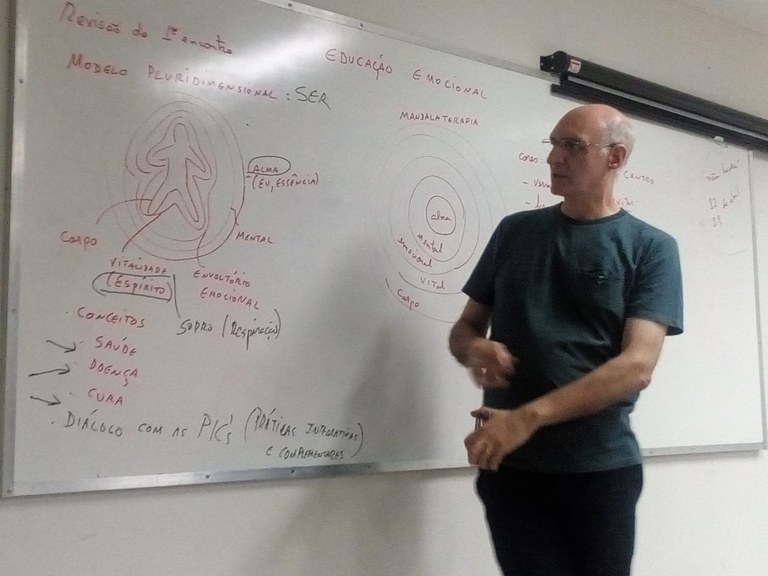 Revisão do 1º encontro
MODELO PLURIDIMENSIONAL: SER
ALMA
(EU, ESSÊNCIA)
MENTAL
CORPO
VITALIDADE
(ESPÍRITO)
ENVOLTÓRIO
EMOCIONAL
SOPRO (RESPIRAÇÃO)
· CONCEITOS
· SAÚDE
· DOENÇA
· CURA
· DIÁLOGO COM AS PICs (PRÁTICAS INTEGRATIVAS
E COMPLEMENTARES)
EDUCAÇÃO EMOCIONAL
MANDALATERAPIA
alma
mental
emocional
VITAL
Corpo
CORES: